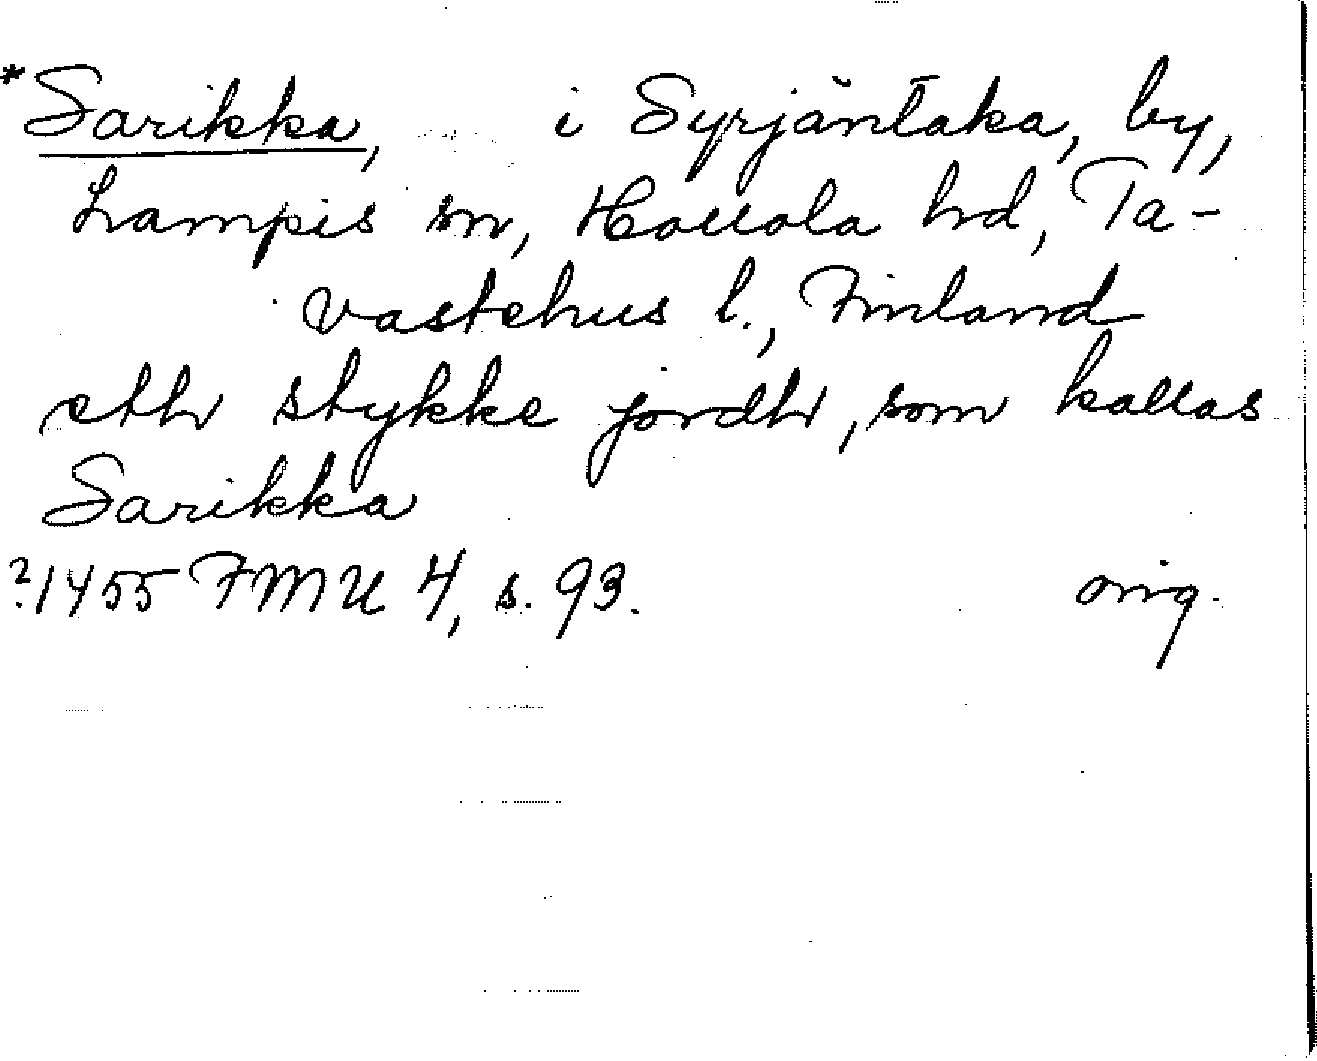 *Sarikka, i Syrjäntaka, by,
Lampis sn, Hollola hd, Ta-
vastehus l., Finland
eth stykke jordh, som kallas
Sarikka
?1455 FMU 4, s. 93. orig.